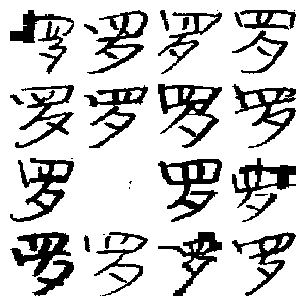 罗罗罗罗
罗罗罗罗
罗罗罗
罗罗罗罗